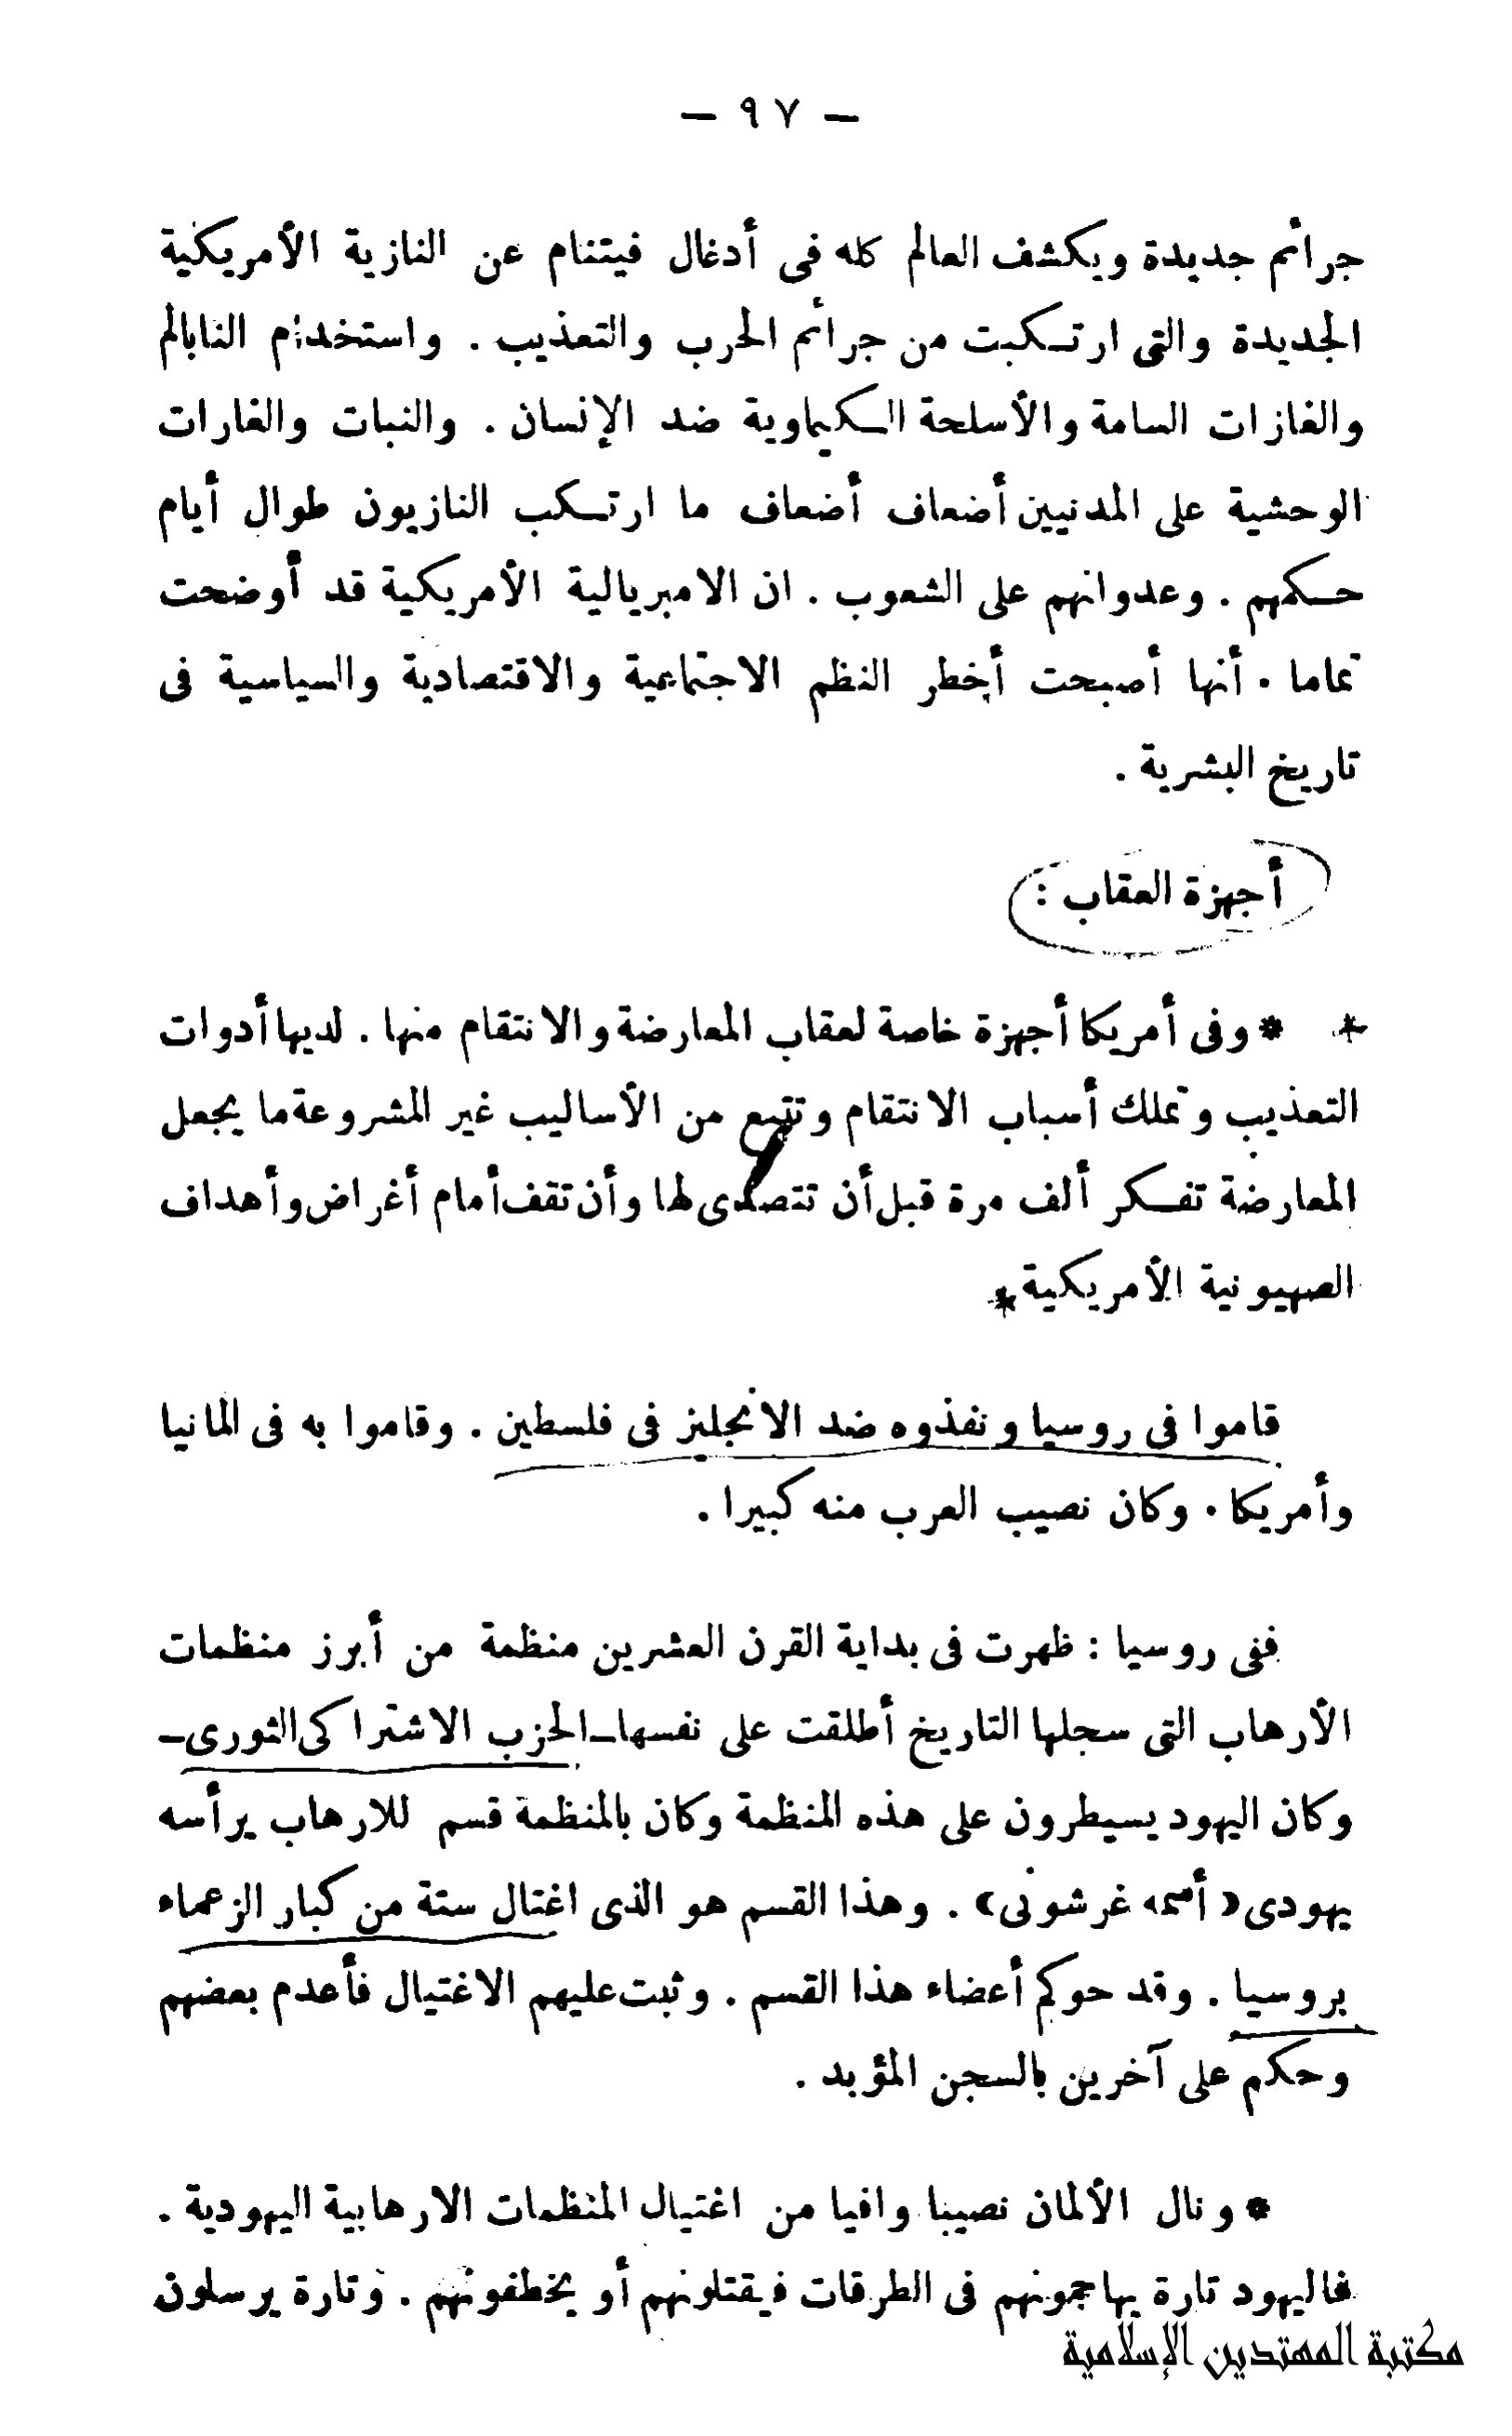 — ٩٧ —
جرائم جديدة ويكشف العالم كله فى أدغال فيتنام عن النازية الأمريكية
الجديدة والتى ارتكبت من جرائم الحرب والتعذيب . واستخدام النابالم
والغازات السامة والأسلحة الكيماوية ضد الإنسان . والنبات والغارات
الوحشية على المدنيين أضعاف أضعاف ما ارتكب النازيون طوال أيام
حكمهم . وعدوانهم على الشعوب . ان الامبريالية الأمريكية قد أوضحت
تماما . أنها أصبحت أخطر النظم الاجتماعية والاقتصادية والسياسية فى
تاريخ البشرية .
أجهزة العقاب :
* * وفى أمريكا أجهزة خاصة لعقاب المعارضة والانتقام منها . لديها أدوات
التعذيب وتملك أسباب الانتقام وتتبع من الأساليب غير المشروعة ما يجعل
المعارضة تفكر ألف مرة قبل أن تتصدى لها وأن تقف أمام أغراض وأهداف
الصهيونية الأمريكية *
قاموا فى روسيا ونفذوه ضد الانجليز فى فلسطين . وقاموا به فى المانيا
وأمريكا . وكان نصيب العرب منه كبيرا .
ففى روسيا : ظهرت فى بداية القرن العشرين منظمة من أبرز منظمات
الأرهاب التى سجلها التاريخ أطلقت على نفسها ـ الحزب الاشتراكى الثورى ـ
وكان اليهود يسيطرون على هذه المنظمة وكان بالمنظمة قسم للارهاب يرأسه
يهودى « أسمه غرشونى » . وهذا القسم هو الذى اغتال ستة من كبار الزعماء
بروسيا . وقد حوكم أعضاء هذا القسم . وثبت عليهم الاغتيال فأعدم بعضهم
وحكم على آخرين بالسجن المؤبد .
* ونال الألمان نصيبا وافيا من اغتيال المنظمات الارهابية اليهودية .
فاليهود تارة يهاجمونهم فى الطرقات فيقتلونهم أو يخطفونهم . وتارة يرسلون
مكتبة المهتدين الإسلامية